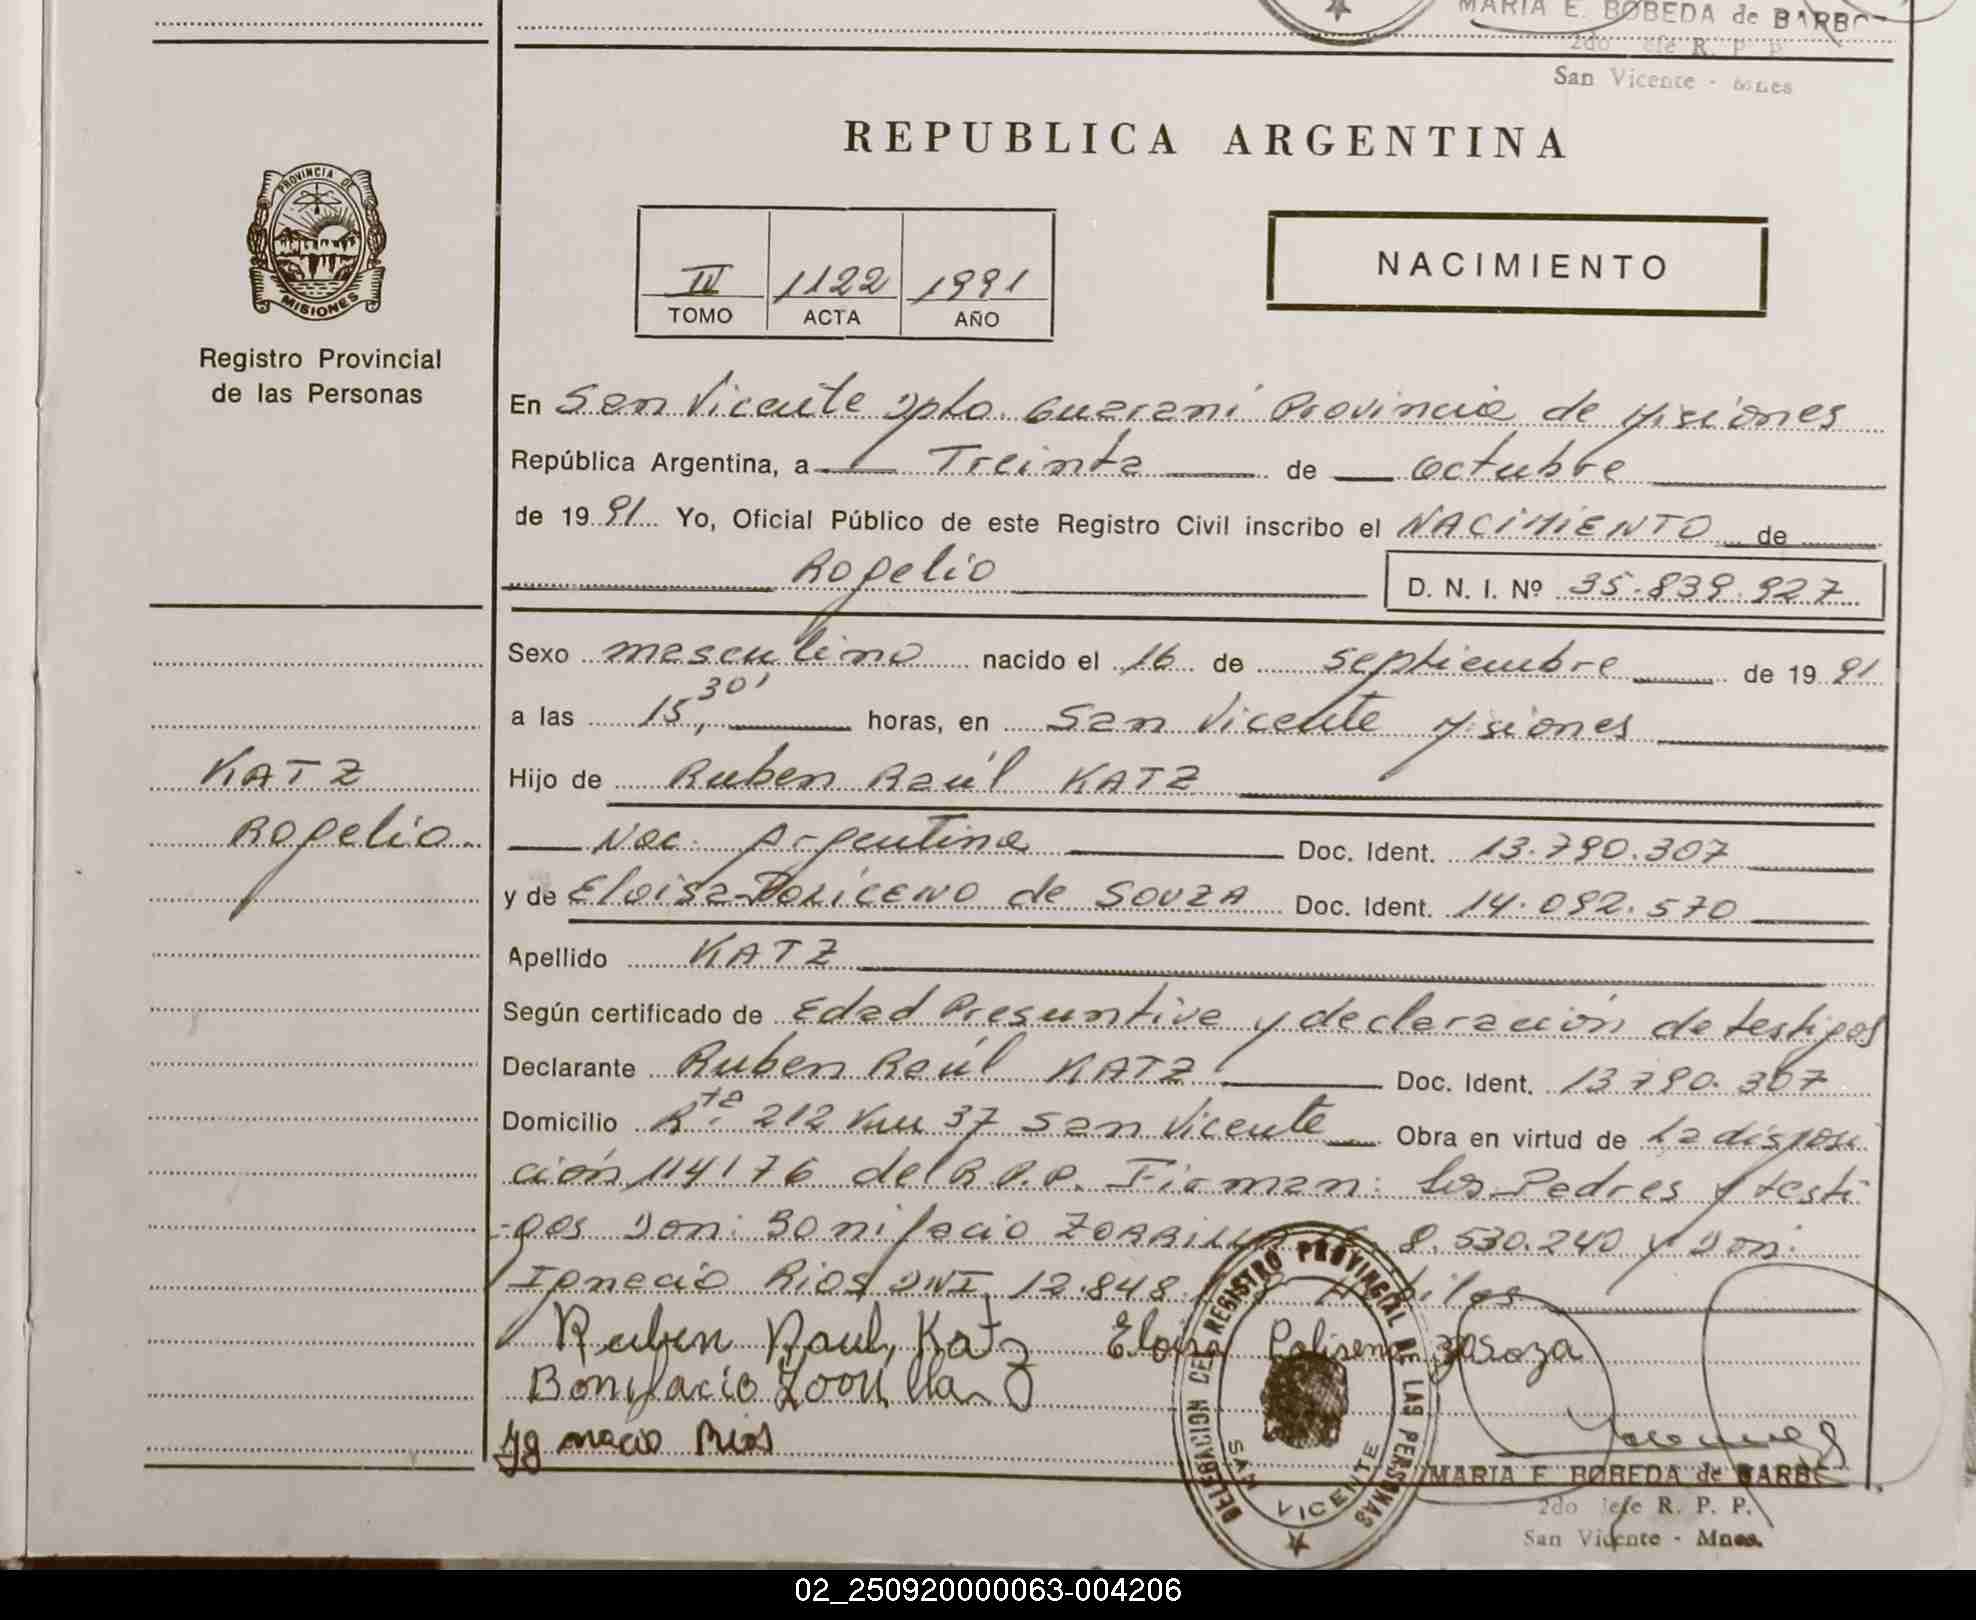 MARIA E. BOBEDA de BARBO
2do Jefe R. P. P.
San Vicente - Mnes
REPUBLICA ARGENTINA
PROVINCIA DE
MISIONES
Registro Provincial
de las Personas
IV 1122 1991
TOMO ACTA AÑO
NACIMIENTO
En San Vicente Dpto. Guaraní Provincia de Misiones
República Argentina, a Treinta de octubre
de 1991 Yo, Oficial Público de este Registro Civil inscribo el NACIMIENTO de
Rogelio
D. N. I. Nº 35.839.927
Sexo masculino nacido el 16 de septiembre de 1991
a las 15,30' horas, en San Vicente Misiones
Hijo de Ruben Raúl KATZ
KATZ
Rogelio
Nac. Argentina Doc. Ident. 13.790.307
y de Eloisa de SOUZA Doc. Ident. 14.092.570
Apellido KATZ
Según certificado de Edad Presuntiva y declaración de testigos
Declarante Ruben Raúl KATZ Doc. Ident. 13.790.307
Domicilio Rta. 212 Km 37 San Vicente Obra en virtud de la disposi
ción 114/76 del R.P.P. Firman: Los Padres y testi
-gos Don: Bonifacio ZORRILLA 8.530.240 y Don:
Ignacio Rios DNI. 12.848. Hábiles
Ruben Raul Katz Eloisa Polisena
Bonifacio
Ygnacio Rios
DELEGACION DEL REGISTRO PROVINCIAL DE LAS PERSONAS
SAN VICENTE
MARIA E. BOBEDA de BARBO
2do Jefe R. P. P.
San Vicente - Mnes.
02_250920000063-004206